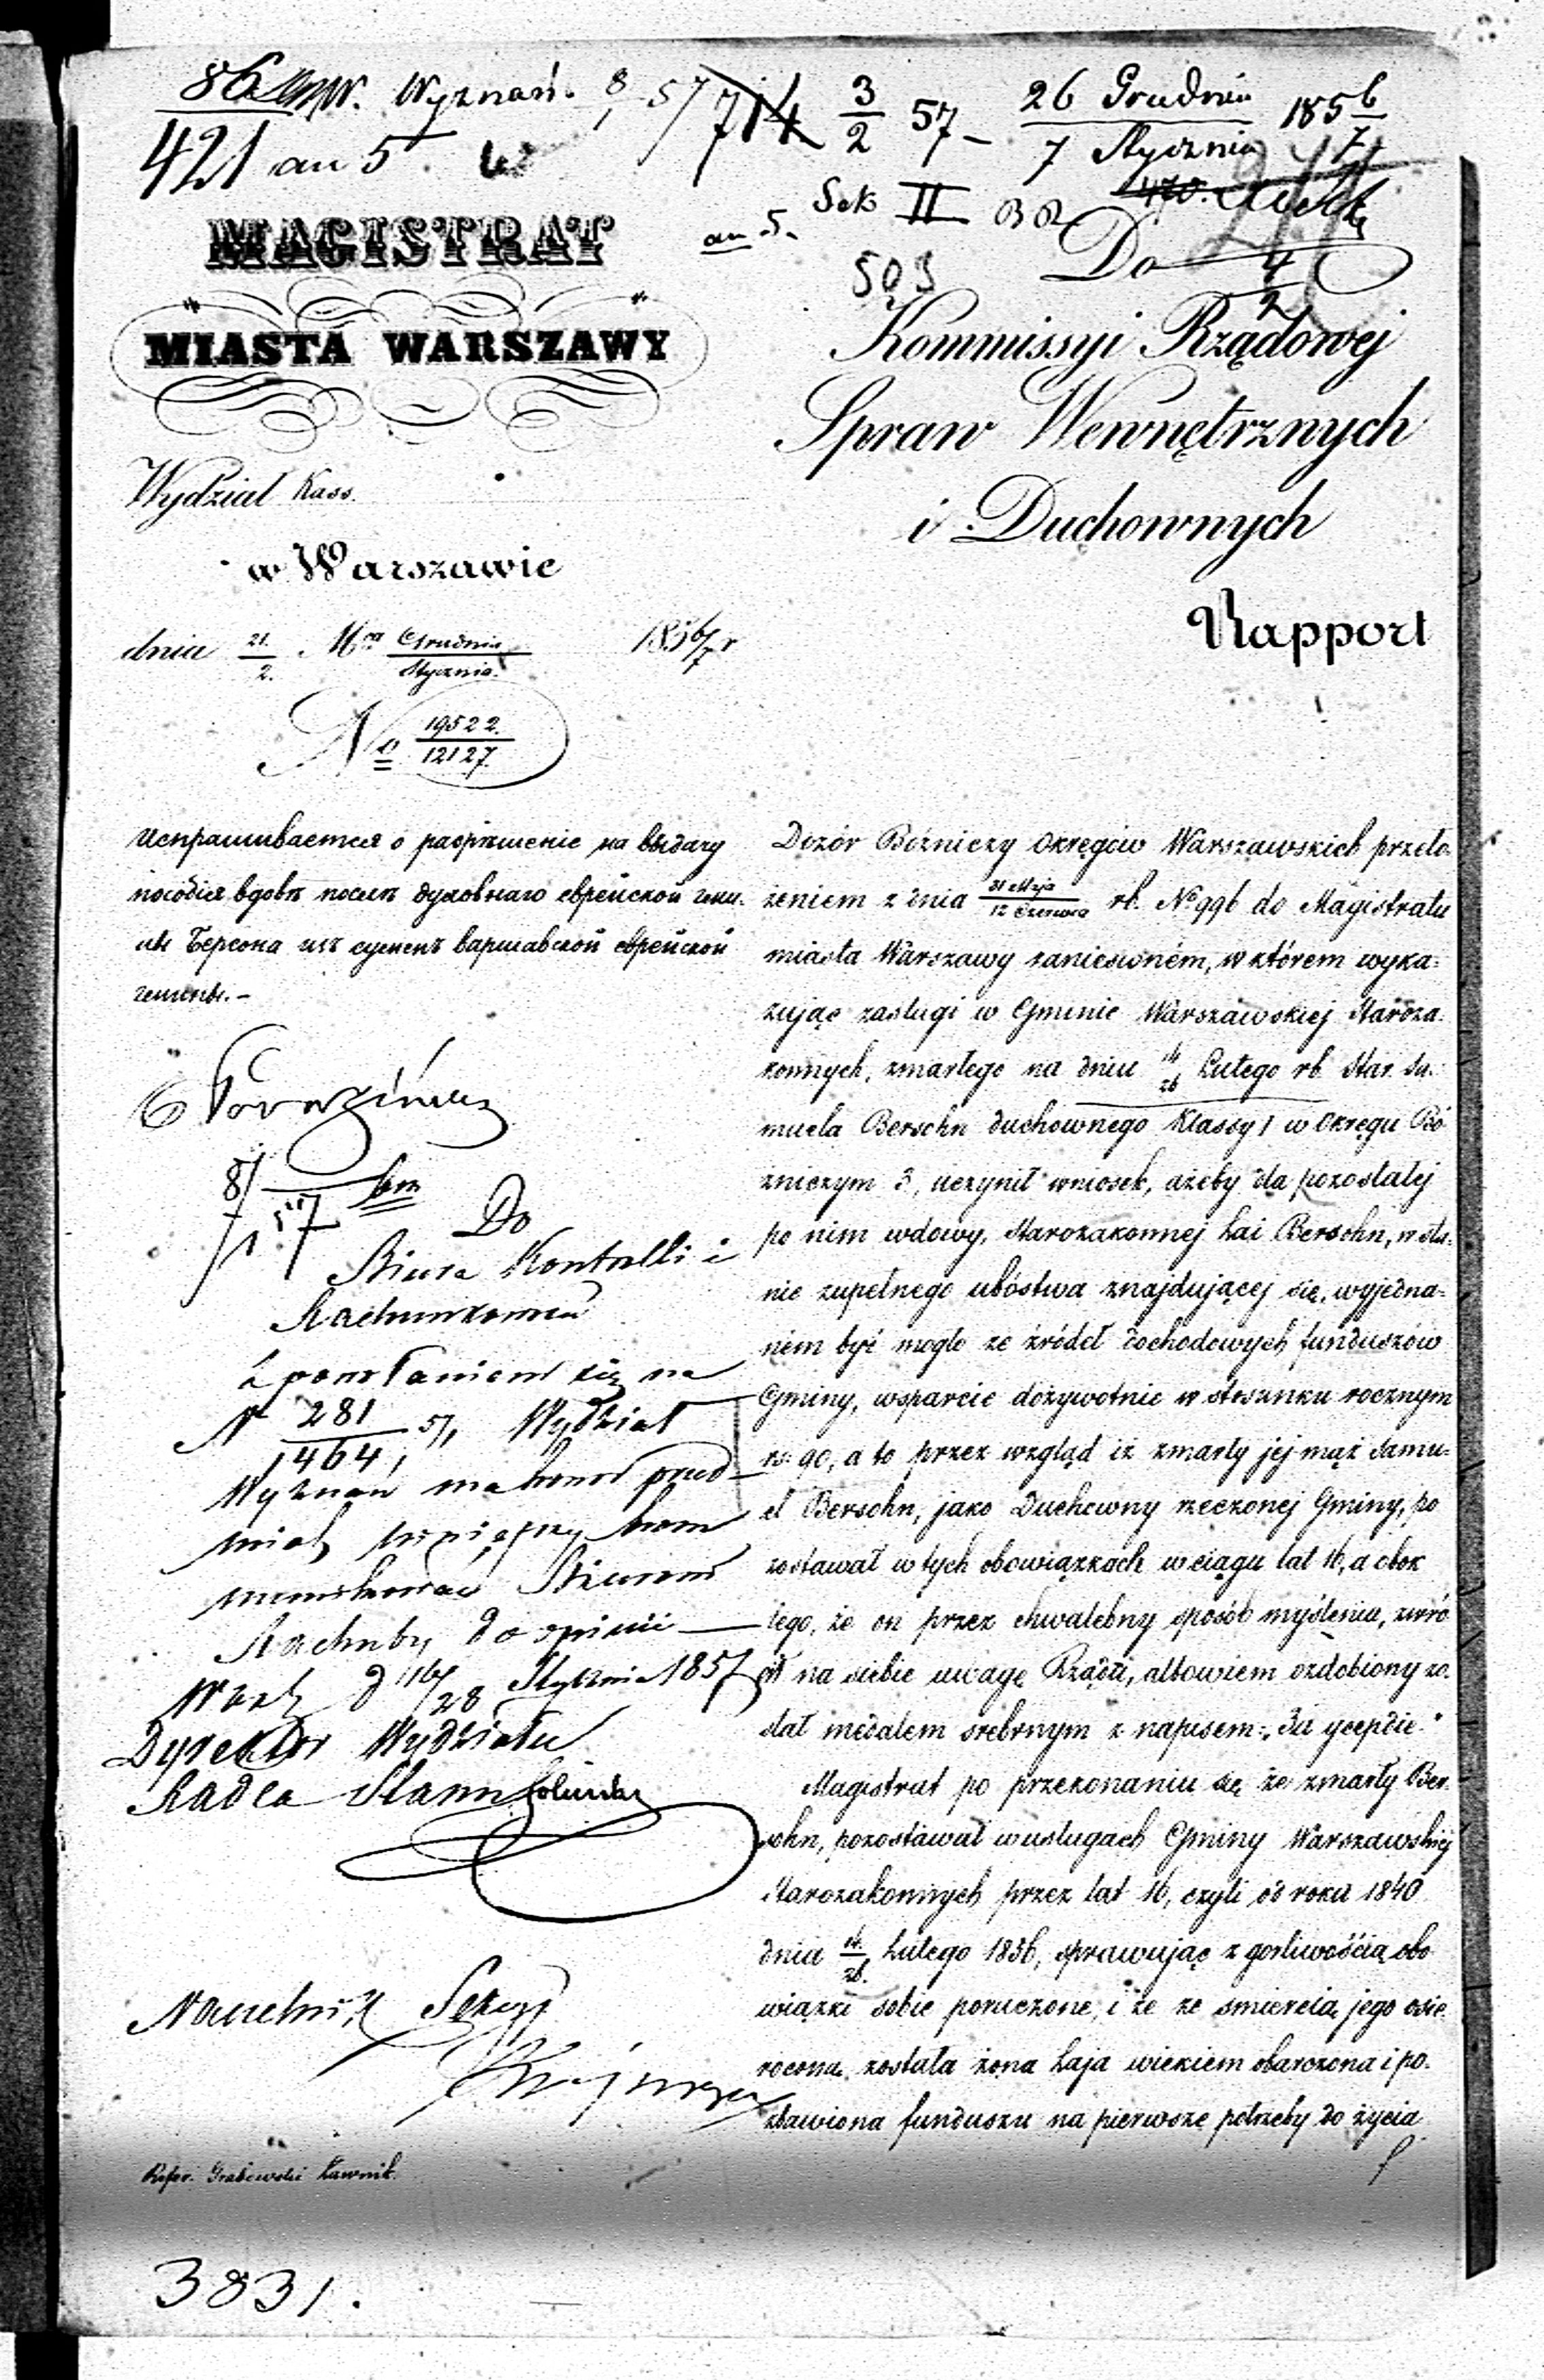 Wyznań. 8/1 57
421 an 5
714 3/2 57
26 Grudnia 1856
7 Stycznia 7
Sek II
an 5.
503
MAGISTRAT
MIASTA WARSZAWY
Wydział Kass.
w Warszawie
dnia 21./2. Mca Grudnia/Stycznia 1856/7 r
No 19522./12127.
Do
Kommissyi Rządowej
Spraw Wewnętrznych
i Duchownych
Rapport
Испрашивается о разрѣшеніе на выдачу
пособія вдовѣ послѣ духовнаго еврейской гми-
ны Берсона изъ суммъ варшавской еврейской
гмины.–
8/1 57
Do
Biura Kontrolli i
Rachunkowości
Z powołaniem się na
N 281/1464 57, Wydział
Wyznań ma honor przed-
miot niniejszy
Biurowi
Rachuby do opinii
Warsz d 16/28 Stycznia 1857
Dyrektor Wydziału
Radca Stanu
Naczelnik Sekcyi
Refer. Grabowski Ławnik.
3831.
Dozór Bóżniczy Okręgów Warszawskich przeło-
żeniem z dnia 31 Maja/12 Czerwca rb. No 996 do Magistratu
miasta Warszawy zaniesioném, w którem wyka-
zując zasługi w Gminie Warszawskiej Staroza-
konnych, zmarłego na dniu 14/26 Lutego rb Star. Sa-
muela Bersohn duchownego Klassy I w Okręgu Bó
żniczym 3, uczynił wniosek, ażeby dla pozostałej
po nim wdowy, Starozakonnej Łai Bersohn, w sta-
nie zupełnego ubóstwa znajdującej się, wyjedna-
nem być mogło ze źródeł dochodowych funduszów
Gminy, wsparcie dożywotnie w stosunku rocznym
rs. 90, a to przez wzgląd iż zmarły jej mąż Samu-
el Bersohn, jako Duchowny rzeczonej Gminy, po
zostawał w tych obowiązkach w ciągu lat 16, a obok
tego, że on przez chwalebny sposób myślenia, zwró
cił na siebie uwagę Rządu, albowiem ozdobiony zo-
stał medalem srebrnym z napisem: „За усердіе."
Magistrat po przekonaniu się że zmarły Ber-
sohn, pozostawał w usługach Gminy Warszawskiej
Starozakonnych przez lat 16, czyli od roku 1840
dnia 14/26. Lutego 1856, sprawując z gorliwością obo
wiązki sobie poruczone, i że ze śmiercią jego osie-
rocona została żona Łaja wiekiem obarczona i po-
zbawiona funduszu na pierwsze potrzeby do życia